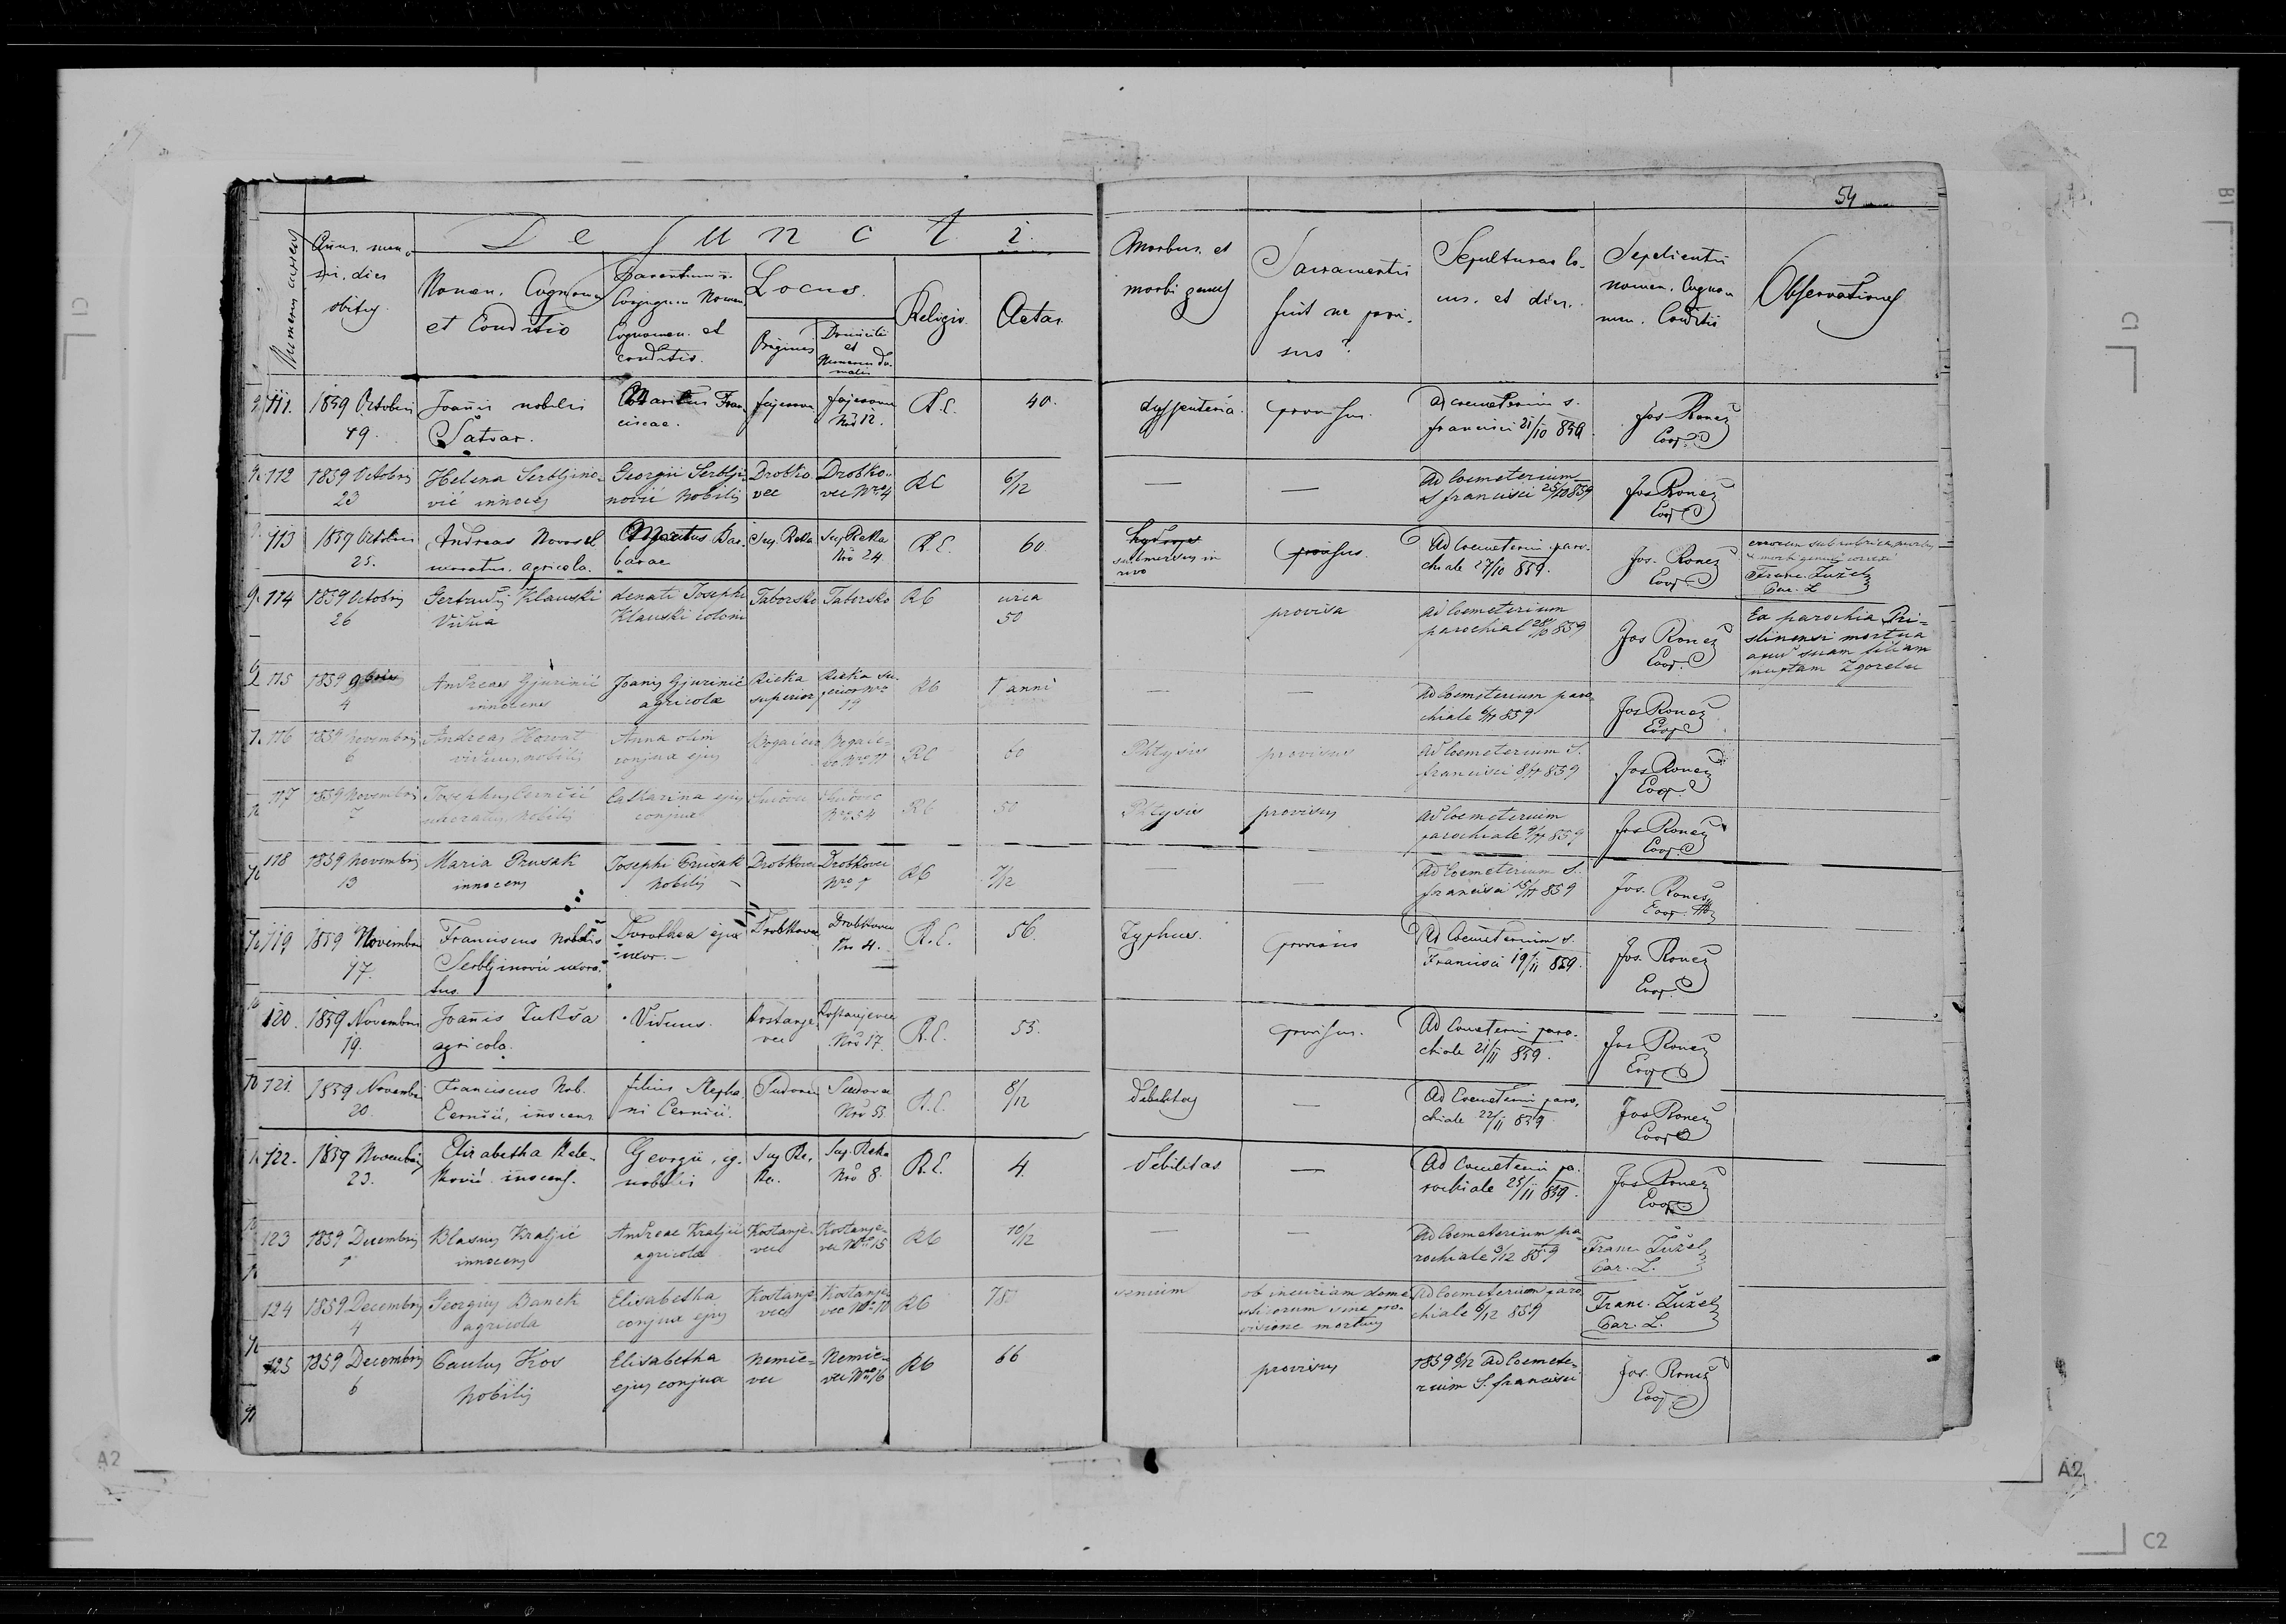 54
Defuncti.
Numerus currens
Annus, men-
sis, dies
obitus
Nomen, Cognomen
et Conditio
Parentum v.
Conjugum Nomen
Cognomen et
conditio.
Locus.
Originis
Domicilii
et
Numerus do-
malis
Religio
Aetas
Morbus et
morbi genus
Sacramentis
fuit ne provi-
sus?
Sepulturae lo-
cus et dies.
Sepelientis
nomen, Cogno-
men, Conditio
Observationes
111. 1859 Octobris
19.
Joannis nobilis
Satvar.
Maritus Fran-
ciscae.
Nro 12.
R.C.
40.
dyssenteria.
provisus.
Ad coemeterium s.
francisci 21/10 859
Jos. Ronez
Coop.
112 1859 Octobris
23
Helena Serbljino-
vić innocens
Georgii Serblji-
nović nobilis
Drobko-
vec
Drobko-
vec Nro 4
RC
6/12
—
—
Ad Coemeterium
S francisci 25/10 859
Jos Ronez
Coop.
113 1859 Octobris
25.
Andreas Novosel
uxoratus. agricola.
Maritus Bar-
barae
Sup. Reka
Sup Reka
Nro 24.
R.C.
60
submersus in
rivo
provisus.
Ad Coemeterium paro-
chiale 27/10 859.
Jos. Ronez
Coop.
errorem sub rubrica morbus
et morbi genus correxi
Franc. Žužel
Par. L.
114 1859 Octobris
26
Gertrudis Klauski
Vidua
denati Josephi
Klauski coloni
Taborsko
Taborsko
RC
circa
50
provisa
ad Coemeterium
parochial 28/10 859
Jos Ronez
Coop.
Ex parochia Pri-
slinensi mortua
apud suam filiam
nuptam Zgorelec
115 1859 9bris
4
Andreas Gjurinić
innocens
Joanis Gjurinić
agricolae
Rieka
superior
Rieka su-
perior Nro
19
RC
1 anni
—
—
Ad Coemeterium paro-
chiale 6/11 859
Jos Ronez
Coop.
116 1859 Novembris
6
Andreas Horvat
viduus, nobilis
Anna olim
conjux ejus
Bogačevo
Bogače-
vo Nro 11
RC
60
Phtysis
provisus
ad Coemeterium S.
francisci 8/11 859
Jos Ronez
Coop.
117 1859 Novembris
7
Josephus Cernčić
uxoratus, nobilis
Catharina ejus
conjux
Sudovec
Sudovec
Nro 54
RC
50
Phtysis
provisus
ad Coemeterium
parochiale 9/11 859
Jos Ronez
Coop.
118 1859 Novembris
13
Maria Prusak
innocens
Josephi Prusak
nobilis
Drobkovec
Drobkovec
Nro 7
RC
7/12
—
—
Ad Coemeterium S.
francisci 15/11 859
Jos. Ronez
Coop.
119 1859 Novembris
17.
Franciscus nobilis
Serbljinović uxora-
tus.
Dorothea ejus
uxor.
Drobkovec
Drobkovec
Nro 4.
R.C.
56.
Typhus.
provisus
Ad Coemeterium s.
Francisci 19/11 859.
Jos. Ronez
Coop.
120. 1859 Novembris
19.
Joannis Lukša
agricola.
Viduus.
Kostanje-
vec
Kostanjevec
Nro 17.
R.C.
55.
provisus.
Ad Coemeterium paro-
chiale 21/11 859.
Jos Ronez
Coop.
121. 1859 Novembris
20.
Franciscus Nob.
Cernčić, innocens.
filius Stepha-
ni Cernčić.
Sudovec
Sudovec
Nro 55.
R.C.
8/12
debilitas
—
Ad Coemeterium paro-
chiale 22/11 859.
Jos Ronez
Coop.
122. 1859 Novembris
23.
Elisabetha Kele-
ković innocens.
Georgii, eg.
nobilis
Sup Re-
ka.
Sup. Reka
Nro 8.
R.C.
4.
debilitas
—
Ad Coemeterium pa-
rochiale 25/11 859.
Jos Ronez
Coop.
123 1859 Decembris
1
Blasius Kraljić
innocens
Andreae Kraljić
agricolae
Kostanje-
vec
Kostanje-
vec Nro 15
RC
10/12
—
—
Ad Coemeterium pa-
rochiale 3/12 859
Franc. Žužel
Par. L.
124 1859 Decembris
4
Georgius Banek
agricola
Elisabetha
conjux ejus
Kostanje-
vec
Kostanje-
vec Nro 10
RC
78
senium
ob incuriam dome-
sticorum sine pro-
visione mortuus
Ad Coemeterium paro-
chiale 6/12 859
Franc. Žužel
Par. L.
125 1859 Decembris
6
Paulus Kos
nobilis
Elisabetha
ejus conjux
Nemče-
vec
Nemče-
vec Nro 16
RC
66
provisus
1859 8/12 ad Coemete-
rium S. francisci
Jos. Ronez
Coop.
C1
A2
B1
C1
A2
C2